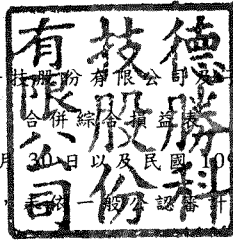 德勝科
技股份
有限公司
技股份有限公司及子
合併綜合損益表
月 30 日以及民國 109
依一般公認審計